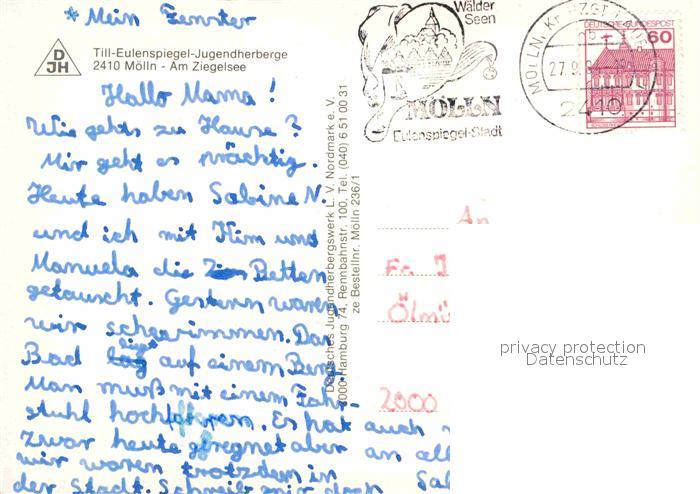 * Mein Fenster
DJH
Till-Eulenspiegel-Jugendherberge
2410 Mölln - Am Ziegelsee
Hallo Mama!
Wie gehts zu Hause?
Mir geht es prächtig.
Heute haben Sabine N.
und ich mit Kim und
Manuela die Betten
getauscht. Gestern waren
wir schwimmen. Das
Bad liegt auf einem Berg
Man muß mit einem Fahr-
stuhl hoch. Es hat auch
zwar heute geregnet aber an all
wir waren trotzdem in Sab
der Stadt. Schreib mir doch
Deutsches Jugendherbergswerk L. V. Nordmark e. V.
2000 Hamburg 74, Rennbahnstr. 100, Tel. (040) 6 51 00 31
ze Bestellnr. Mölln 236/1
Wälder
Seen
MÖLLN
Eulenspiegel-Stadt
MÖLLN, Kr
27.9.
2410
DEUTSCHE BUNDESPOST
60
An
Fr
Ölmü
2000
privacy protection
Datenschutz